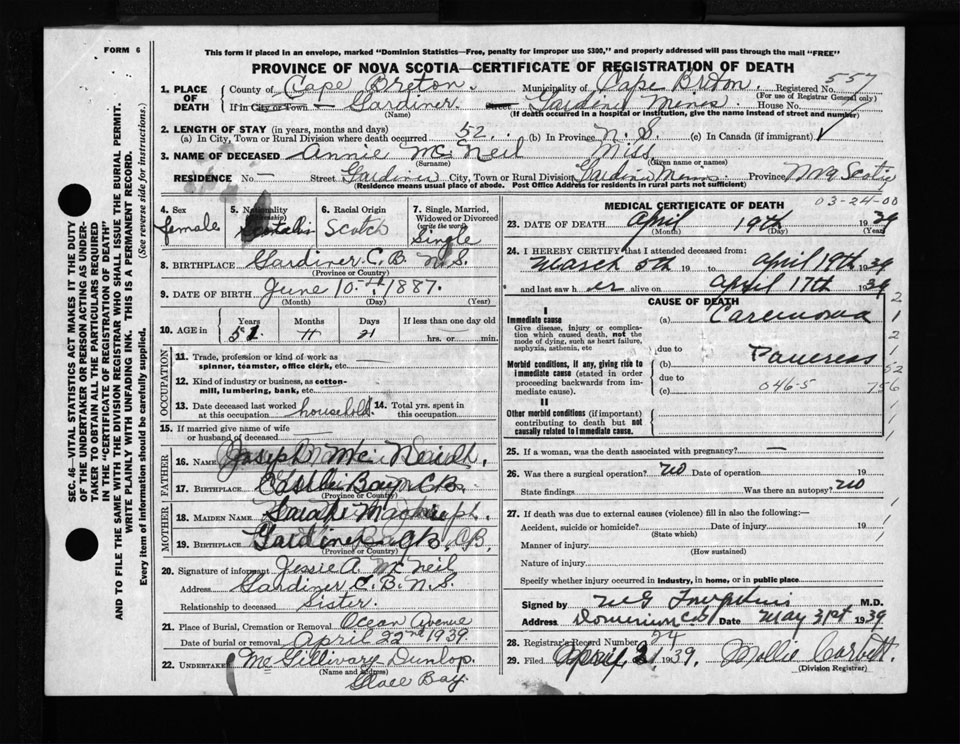 FORM 6
This form if placed in an envelope, marked "Dominion Statistics—Free, penalty for improper use $300," and properly addressed will pass through the mail "FREE"
PROVINCE OF NOVA SCOTIA—CERTIFICATE OF REGISTRATION OF DEATH
SEC. 46—VITAL STATISTICS ACT MAKES IT THE DUTY
OF THE UNDERTAKER OR PERSON ACTING AS UNDER-
TAKER TO OBTAIN ALL THE PARTICULARS REQUIRED
IN THE "CERTIFICATE OF REGISTRATION OF DEATH"
AND TO FILE THE SAME WITH THE DIVISION REGISTRAR WHO SHALL ISSUE THE BURIAL PERMIT.
WRITE PLAINLY WITH UNFADING INK. THIS IS A PERMANENT RECORD.
Every item of information should be carefully supplied. (See reverse side for instructions.)
1. PLACE OF DEATH County of Cape Breton Municipality of Cape Breton Registered No. 557
(For use of Registrar General only)
If in City or Town — Gardiner Street Gardiner Mines House No.
(Name) (If death occurred in a hospital or institution, give the name instead of street and number)
2. LENGTH OF STAY (in years, months and days)
(a) In City, Town or Rural Division where death occurred 52 (b) In Province N.S. (c) In Canada (if immigrant) ✓
3. NAME OF DECEASED Annie McNeil Miss
(Surname) (Given name or names)
RESIDENCE No — Street Gardiner City, Town or Rural Division Gardiner Mines Province Nova Scotia
(Residence means usual place of abode. Post Office Address for residents in rural parts not sufficient)
4. Sex female
5. Nationality (Citizenship)
6. Racial Origin Scotch
7. Single, Married, Widowed or Divorced (write the word) Single
8. BIRTHPLACE Gardiner C.B. N.S.
(Province or Country)
9. DATE OF BIRTH June 10th 1887.
(Month) (Day) (Year)
10. AGE in Years Months Days If less than one day
21 hrs. or min.
OCCUPATION
11. Trade, profession or kind of work as spinner, teamster, office clerk, etc. —
12. Kind of industry or business, as cotton-mill, lumbering, bank, etc.
13. Date deceased last worked at this occupation household. 14. Total yrs. spent in this occupation
15. If married give name of wife or husband of deceased —
FATHER
16. NAME Joseph McNeil
17. BIRTHPLACE Bay C.B.
(Province or Country)
MOTHER
18. MAIDEN NAME
19. BIRTHPLACE Gardiner C.B.
(Province or Country)
20. Signature of informant Jessie A. McNeil
Address Gardiner C.B. N.S.
Relationship to deceased Sister.
21. Place of Burial, Cremation or Removal Ocean Avenue
Date of burial or removal April 22nd 1939
22. UNDERTAKER McGillivary Dunlop.
(Name and address)
Glace Bay.
MEDICAL CERTIFICATE OF DEATH
03-24-00
23. DATE OF DEATH April 19th 1939
(Month) (Day) (Year)
24. I HEREBY CERTIFY that I attended deceased from:
March 5th 19 to April 19th 1939
and last saw her alive on April 17th 1939
CAUSE OF DEATH
I
Immediate cause (a) Carcinoma
Give disease, injury or complica-
tion which caused death, not the
mode of dying, such as heart failure,
asphyxia, asthenia, etc due to
Morbid conditions, if any, giving rise to (b) Pancreas
immediate cause (stated in order due to
proceeding backwards from im- (c) 046-5
mediate cause).
2
1
2
1
52
756
II
Other morbid conditions (if important)
contributing to death but not
causally related to immediate cause.
25. If a woman, was the death associated with pregnancy? —
26. Was there a surgical operation? no Date of operation 19
State findings Was there an autopsy? no
27. If death was due to external causes (violence) fill in also the following:—
Accident, suicide or homicide? Date of injury 19
(State which)
Manner of injury
(How sustained)
Nature of injury
Specify whether injury occurred in industry, in home, or in public place
Signed by M.D.
Address Dominion C.B. Date May 31st 1939
28. Registrar's Record Number 24
29. Filed 1939. Mollie Corbett.
(Division Registrar)